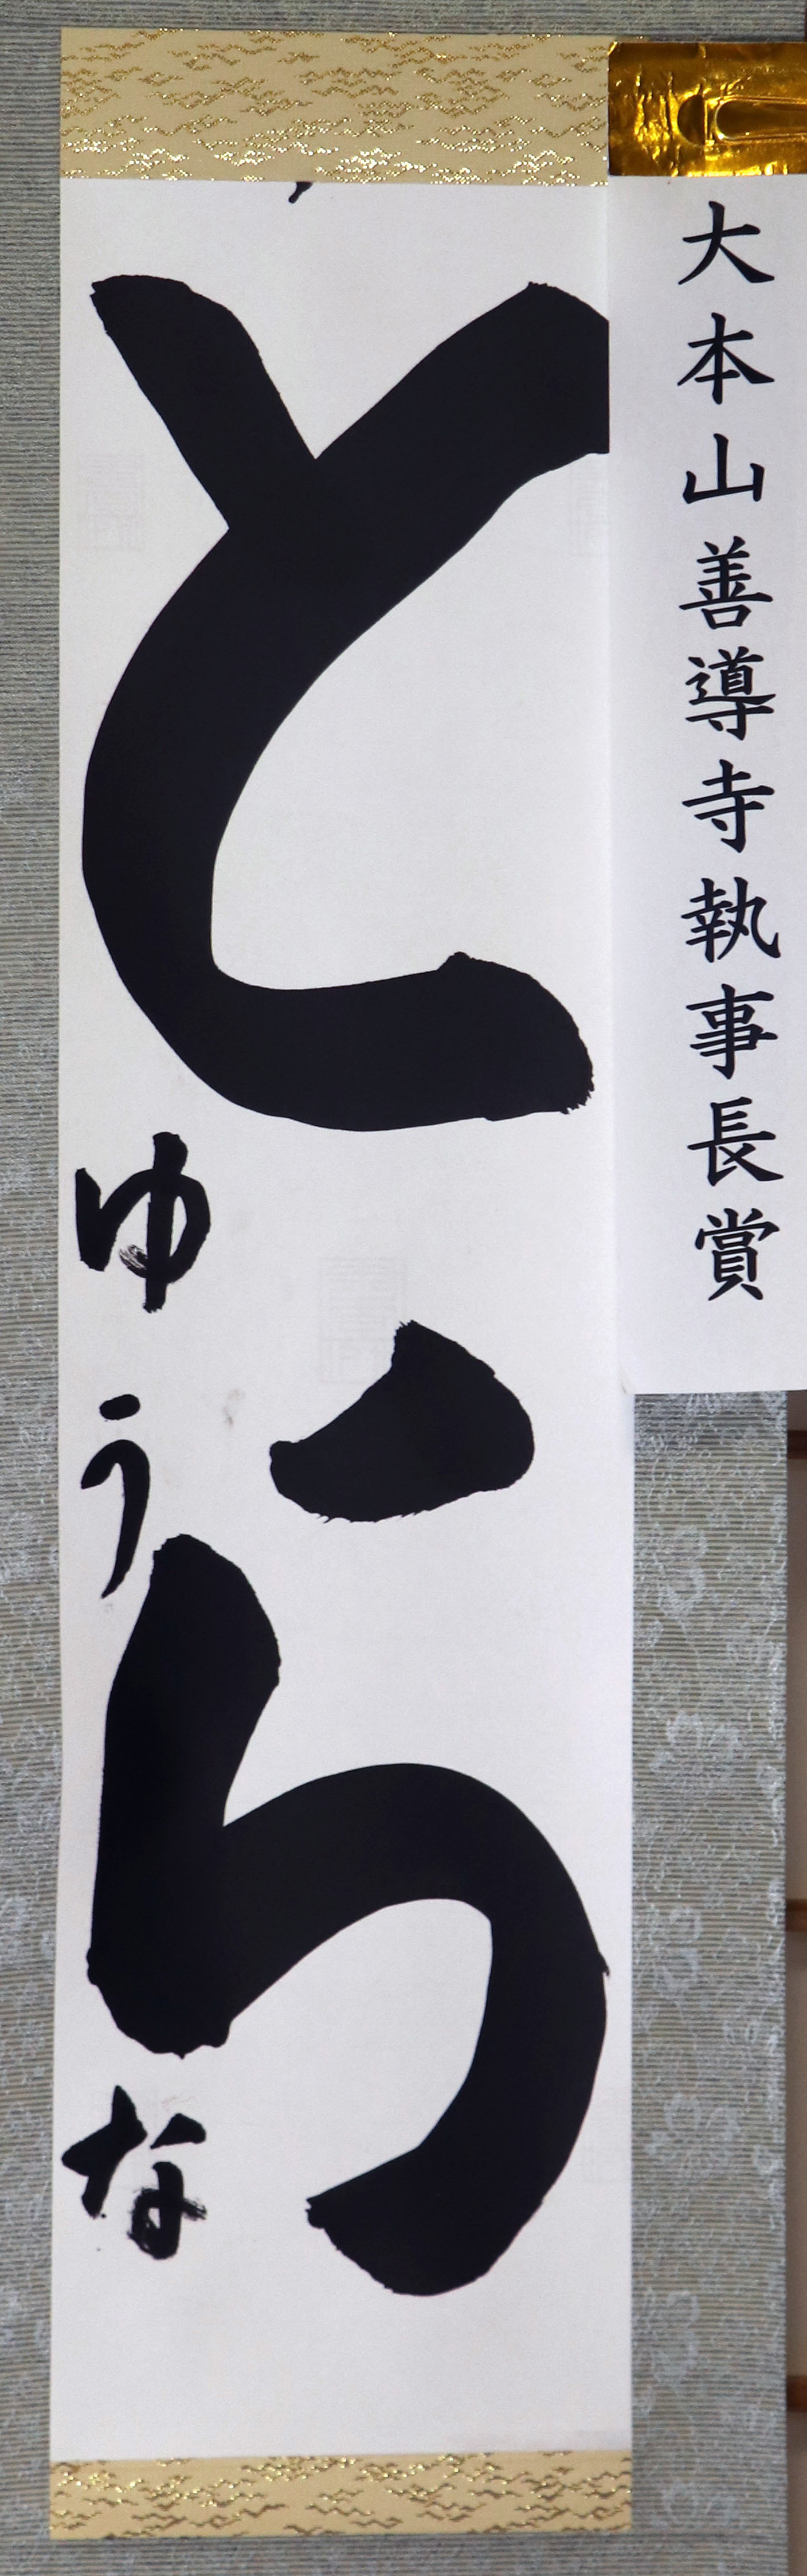 大本山善導寺執事長賞
とら
ゆうな